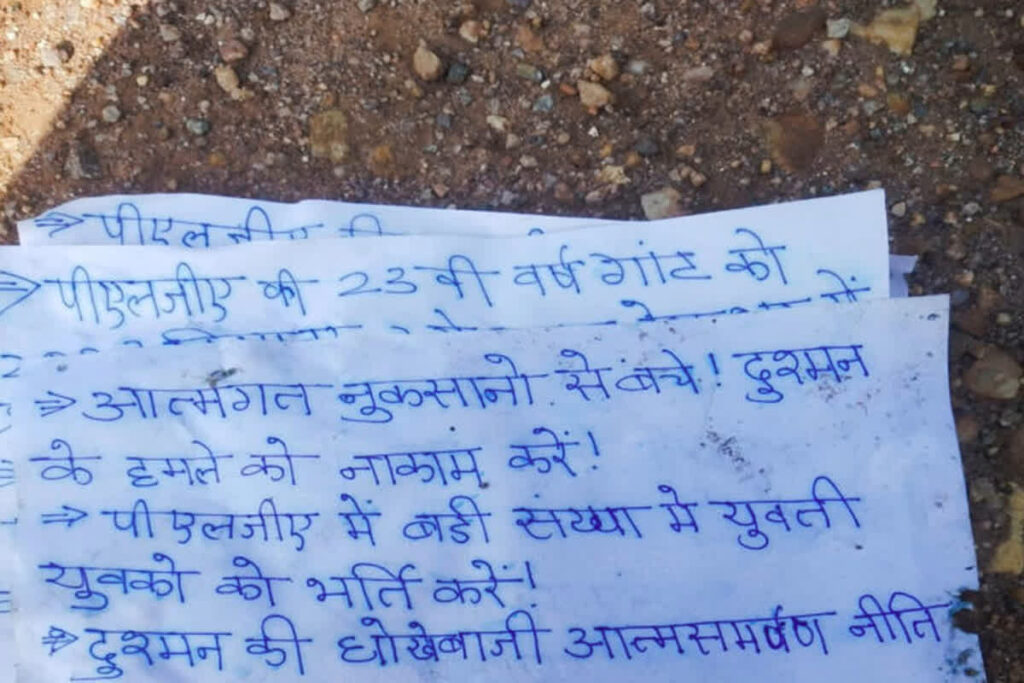 ⇒ पीएलजीए की
⇒ पीएलजीए की 23 वी वर्ष गांट को
⇒ आत्मगत नुकसानो से बंचे! दुश्मन
के हमले को नाकाम करें!
⇒ पीएलजीए में बडी संख्या मे युवती
युवको को भर्ति करें!
⇒ दुश्मन की धोखेबाजी आत्मसमर्पण नीति